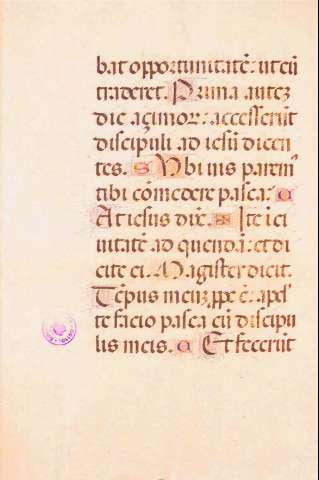 bat opportunitatē: ut eū
traderet. Prima autez
die açimor: accesserūt
discipuli ad iesū dicen
tes. S Vbi uis parem
tibi cōmedere pasca: C
At iesus dix̄. S Ite ī ci
uitatē ad quendā: et di
cite ei. Magister dicit.
Tēpus meuz ꝓpe ē: apḋ
te facio pasca cū discipu
lis meis. C Et fecerūt